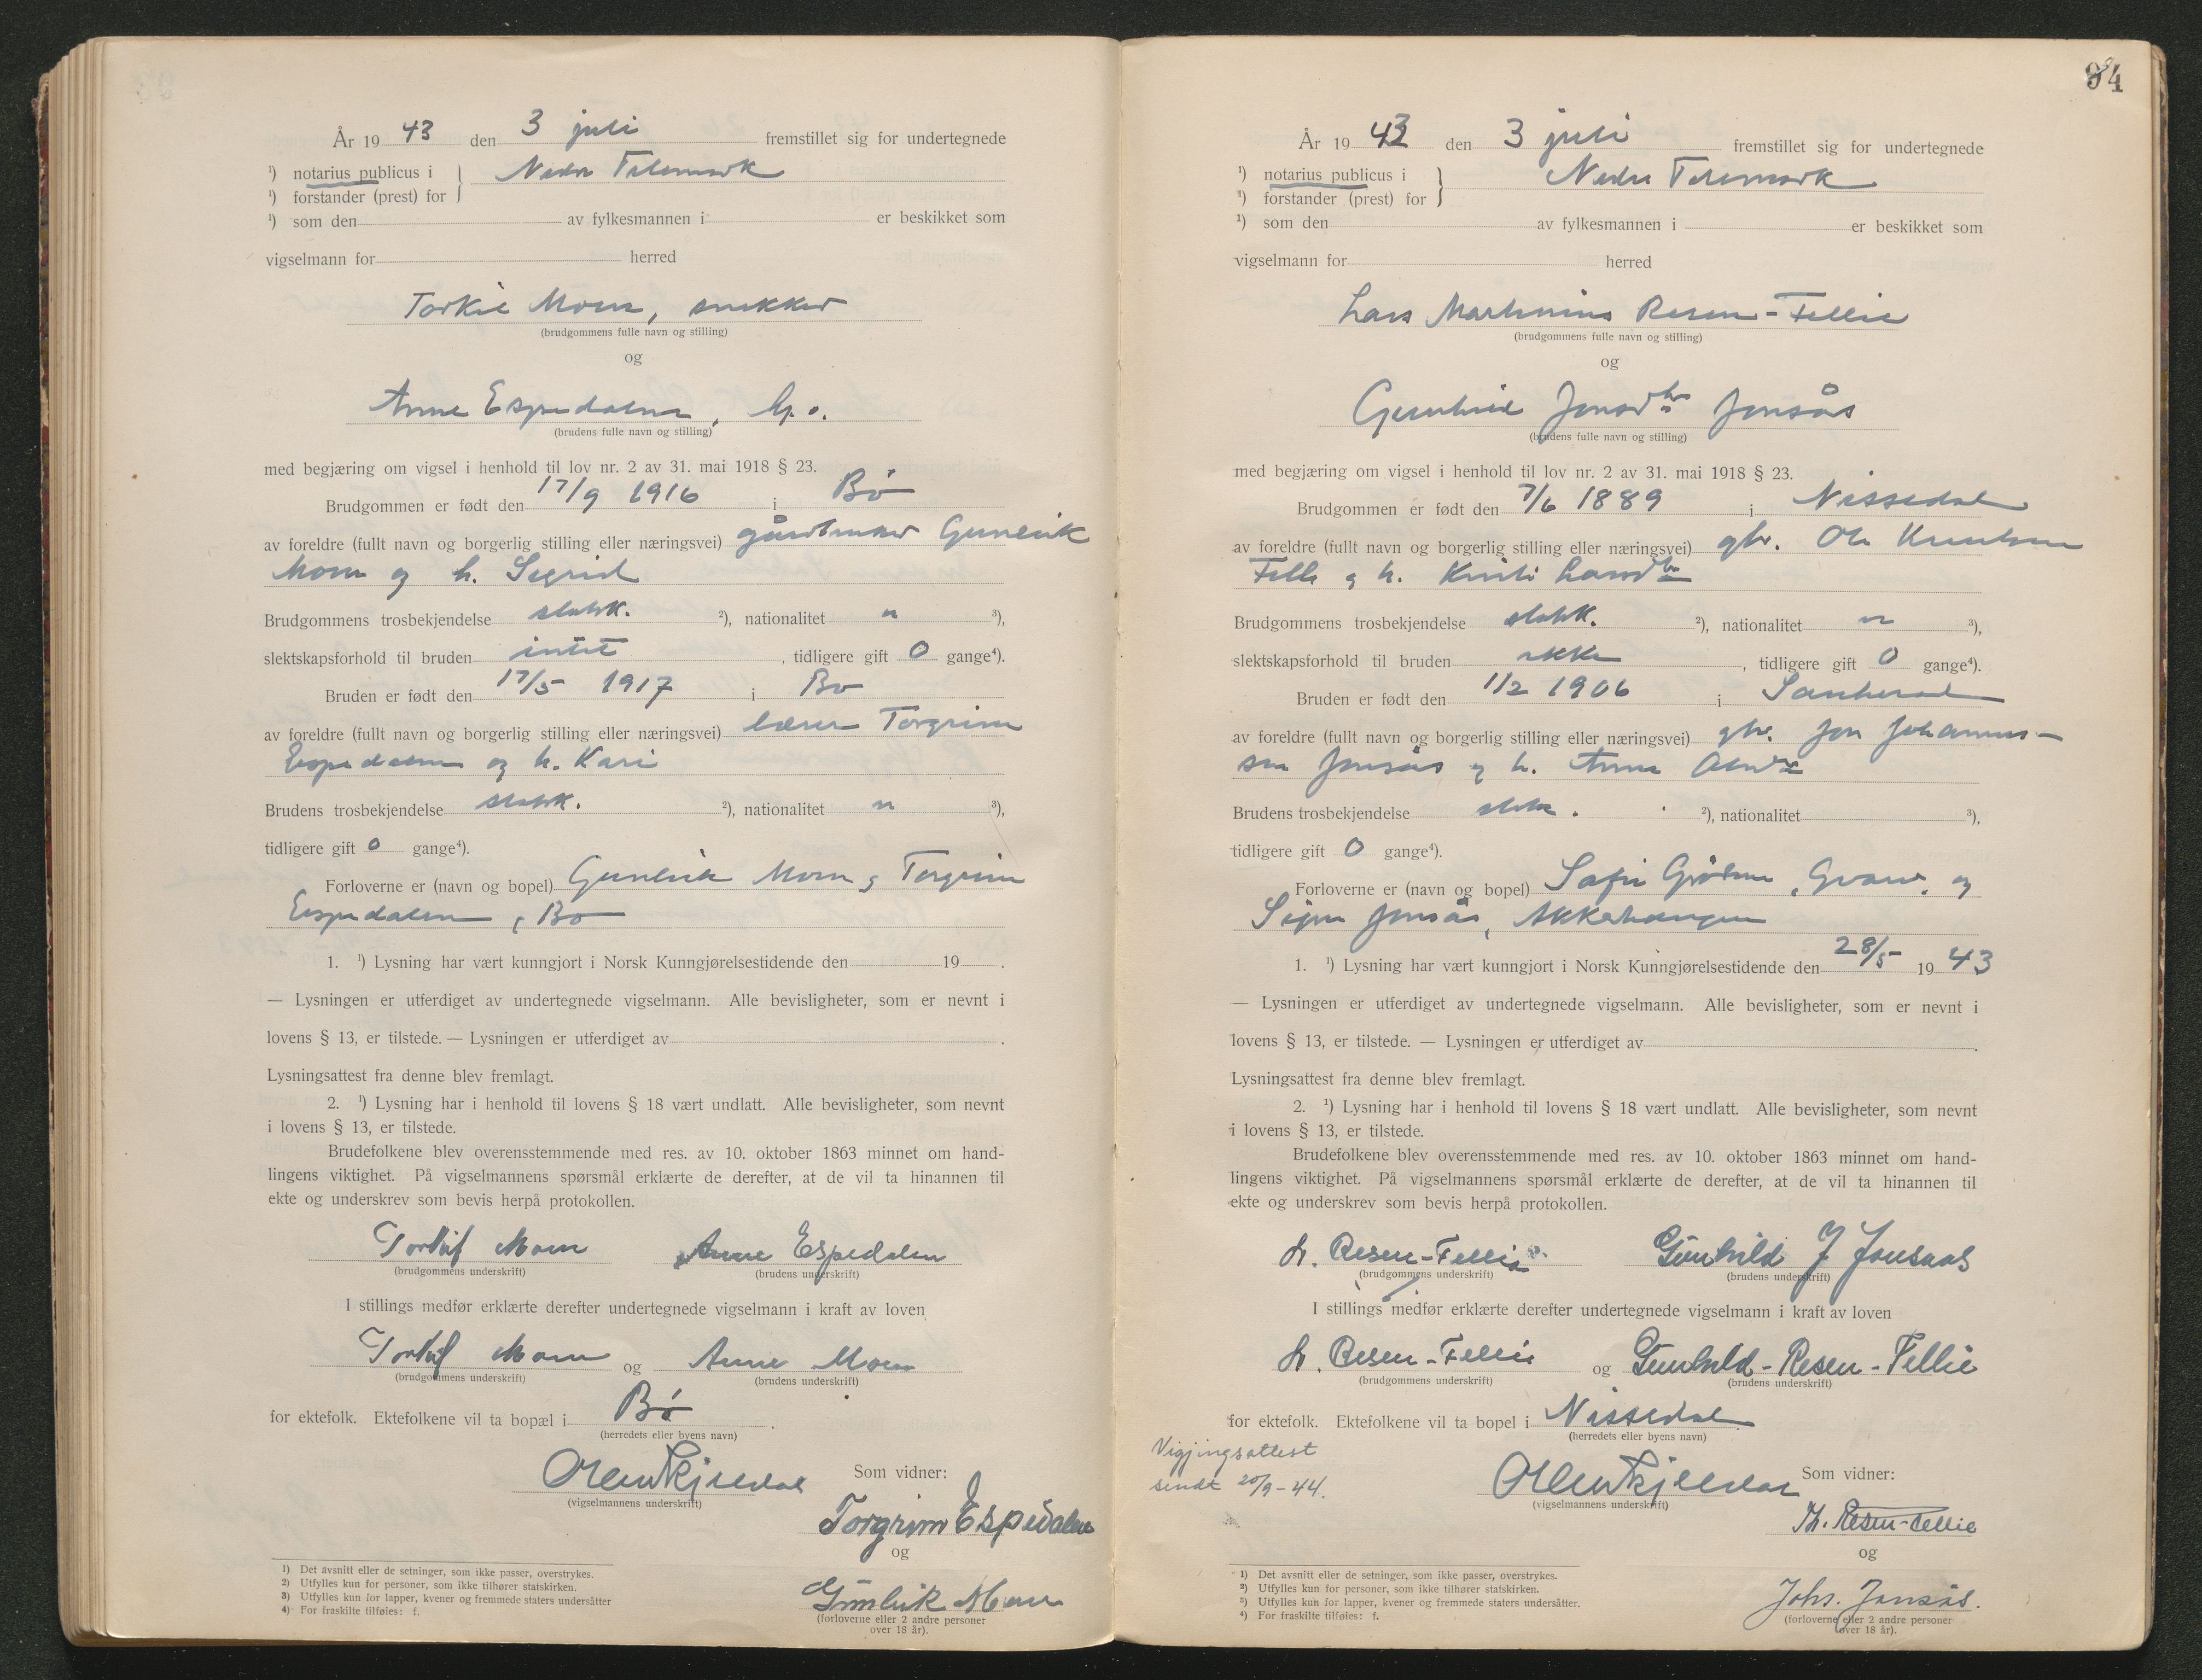 År 19 43 den 3 juli fremstillet sig for undertegnede
¹) notarius publicus i } Nedre Telemark
¹) forstander (prest) for
¹) som den av fylkesmannen i er beskikket som
vigselmann for herred
Torkil Moen, snekker
(brudgommens fulle navn og stilling)
og
Anne Espedalen,
(brudens fulle navn og stilling)
med begjæring om vigsel i henhold til lov nr. 2 av 31. mai 1918 § 23.
Brudgommen er født den 17/9 1916 i Bø
av foreldre (fullt navn og borgerlig stilling eller næringsvei) gårdbruker Gunleik
Moen og h. Sigrid
Brudgommens trosbekjendelse statsk. ²), nationalitet n ³),
slektskapsforhold til bruden intet , tidligere gift 0 gange⁴).
Bruden er født den 17/5 1917 i Bø
av foreldre (fullt navn og borgerlig stilling eller næringsvei) lærer Torgrim
Espedalen og h. Kari
Brudens trosbekjendelse statsk. ²), nationalitet n ³),
tidligere gift 0 gange⁴).
Forloverne er (navn og bopel) Gunleik Moen og Torgrim
Espedalen, Bø
1. ¹) Lysning har vært kunngjort i Norsk Kunngjørelsestidende den 19 .
— Lysningen er utferdiget av undertegnede vigselmann. Alle bevisligheter, som er nevnt i
lovens § 13, er tilstede. — Lysningen er utferdiget av .
Lysningsattest fra denne blev fremlagt.
2. ¹) Lysning har i henhold til lovens § 18 vært undlatt. Alle bevisligheter, som nevnt
i lovens § 13, er tilstede.
Brudefolkene blev overensstemmende med res. av 10. oktober 1863 minnet om hand-
lingens viktighet. På vigselmannens spørsmål erklærte de derefter, at de vil ta hinannen til
ekte og underskrev som bevis herpå protokollen.
Moen Anne Espedalen
(brudgommens underskrift) (brudens underskrift)
I stillings medfør erklærte derefter undertegnede vigselmann i kraft av loven
Moen og Anne Moen
(brudgommens underskrift) (brudens underskrift)
for ektefolk. Ektefolkene vil ta bopæl i Bø .
(herredets eller byens navn)
Som vidner:
(vigselmannens underskrift)
Torgrim Espedalen
og
Gunleik Moen
(forloverne eller 2 andre personer
over 18 år).
¹) Det avsnitt eller de setninger, som ikke passer, overstrykes.
²) Utfylles kun for personer, som ikke tilhører statskirken.
³) Utfylles kun for lapper, kvener og fremmede staters undersåtter
⁴) For fraskilte tilføies: f.
94
År 19 43 den 3 juli fremstillet sig for undertegnede
¹) notarius publicus i } Nedre Telemark
¹) forstander (prest) for
¹) som den av fylkesmannen i er beskikket som
vigselmann for herred
Lars Martinius Resen-Fellie
(brudgommens fulle navn og stilling)
og
Gunhild Jonsdtr Jonsås
(brudens fulle navn og stilling)
med begjæring om vigsel i henhold til lov nr. 2 av 31. mai 1918 § 23.
Brudgommen er født den 7/6 1889 i Nissedal
av foreldre (fullt navn og borgerlig stilling eller næringsvei) gbr. Ole Knutsen
Felle og h. Larsdtr
Brudgommens trosbekjendelse statsk. ²), nationalitet n ³),
slektskapsforhold til bruden ikke , tidligere gift 0 gange⁴).
Bruden er født den 1/2 1906 i Sauherad
av foreldre (fullt navn og borgerlig stilling eller næringsvei) gbr. Jon Johannes-
sen Jonsås og h. Anne
Brudens trosbekjendelse statsk. ²), nationalitet ³),
tidligere gift 0 gange⁴).
Forloverne er (navn og bopel) , Gvarv, og
Signe Jonsås, Akkerhaugen
1. ¹) Lysning har vært kunngjort i Norsk Kunngjørelsestidende den 28/5 19 43
— Lysningen er utferdiget av undertegnede vigselmann. Alle bevisligheter, som er nevnt i
lovens § 13, er tilstede. — Lysningen er utferdiget av .
Lysningsattest fra denne blev fremlagt.
2. ¹) Lysning har i henhold til lovens § 18 vært undlatt. Alle bevisligheter, som nevnt
i lovens § 13, er tilstede.
Brudefolkene blev overensstemmende med res. av 10. oktober 1863 minnet om hand-
lingens viktighet. På vigselmannens spørsmål erklærte de derefter, at de vil ta hinannen til
ekte og underskrev som bevis herpå protokollen.
L. Resen-Fellie Gunhild J Jonsaas
(brudgommens underskrift) (brudens underskrift)
I stillings medfør erklærte derefter undertegnede vigselmann i kraft av loven
L. Resen-Fellie og Gunhild-Resen-Fellie
(brudgommens underskrift) (brudens underskrift)
for ektefolk. Ektefolkene vil ta bopel i Nissedal
(herredets eller byens navn)
Vigjingsattest
sendt 20/9-44.
Som vidner:
(vigselmannens underskrift)
Resen-Fellie
og
Johs. Jonsås.
(forloverne eller 2 andre personer
over 18 år).
¹) Det avsnitt eller de setninger, som ikke passer, overstrykes.
²) Utfylles kun for personer, som ikke tilhører statskirken.
³) Utfylles kun for lapper, kvener og fremmede staters undersåtter.
⁴) For fraskilte tilføies: f.